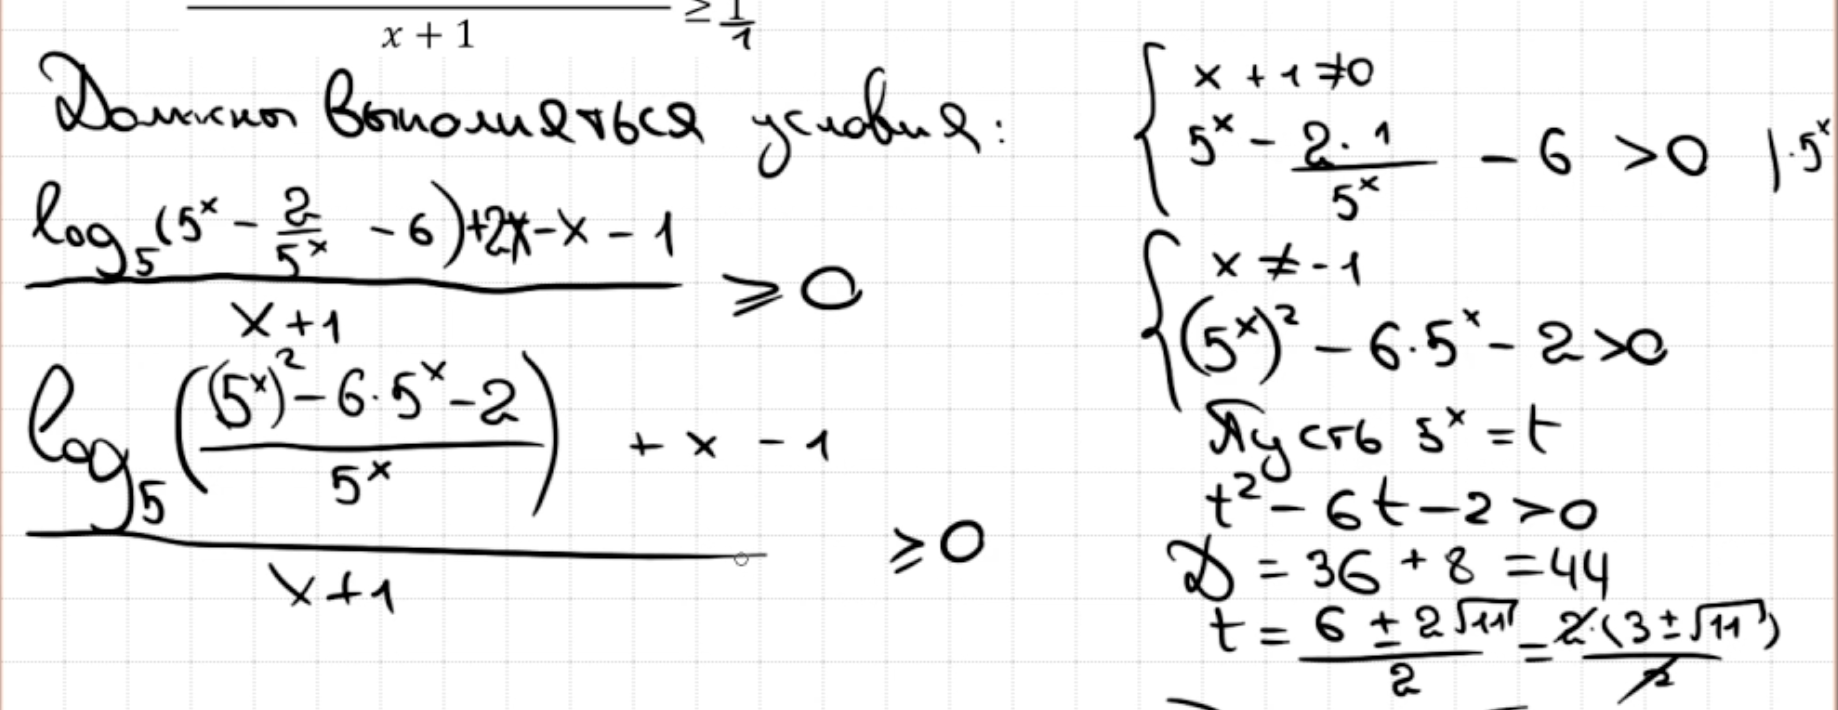 x + 1 ≥ 1/1
Должны выполняться условия:
log₅(5ˣ - 2/5ˣ - 6)+2x-x-1
x+1
≥ 0
log₅(((5ˣ)² - 6·5ˣ - 2)/5ˣ) + x - 1
x+1
≥ 0
{ x + 1 ≠ 0
5ˣ - 2·1/5ˣ - 6 > 0 |·5ˣ
{ x ≠ -1
(5ˣ)² - 6·5ˣ - 2 > 0
Пусть 5ˣ = t
t² - 6t - 2 > 0
D = 36 + 8 = 44
t = (6 ± 2√11)/2 = 2·(3 ± √11)/2